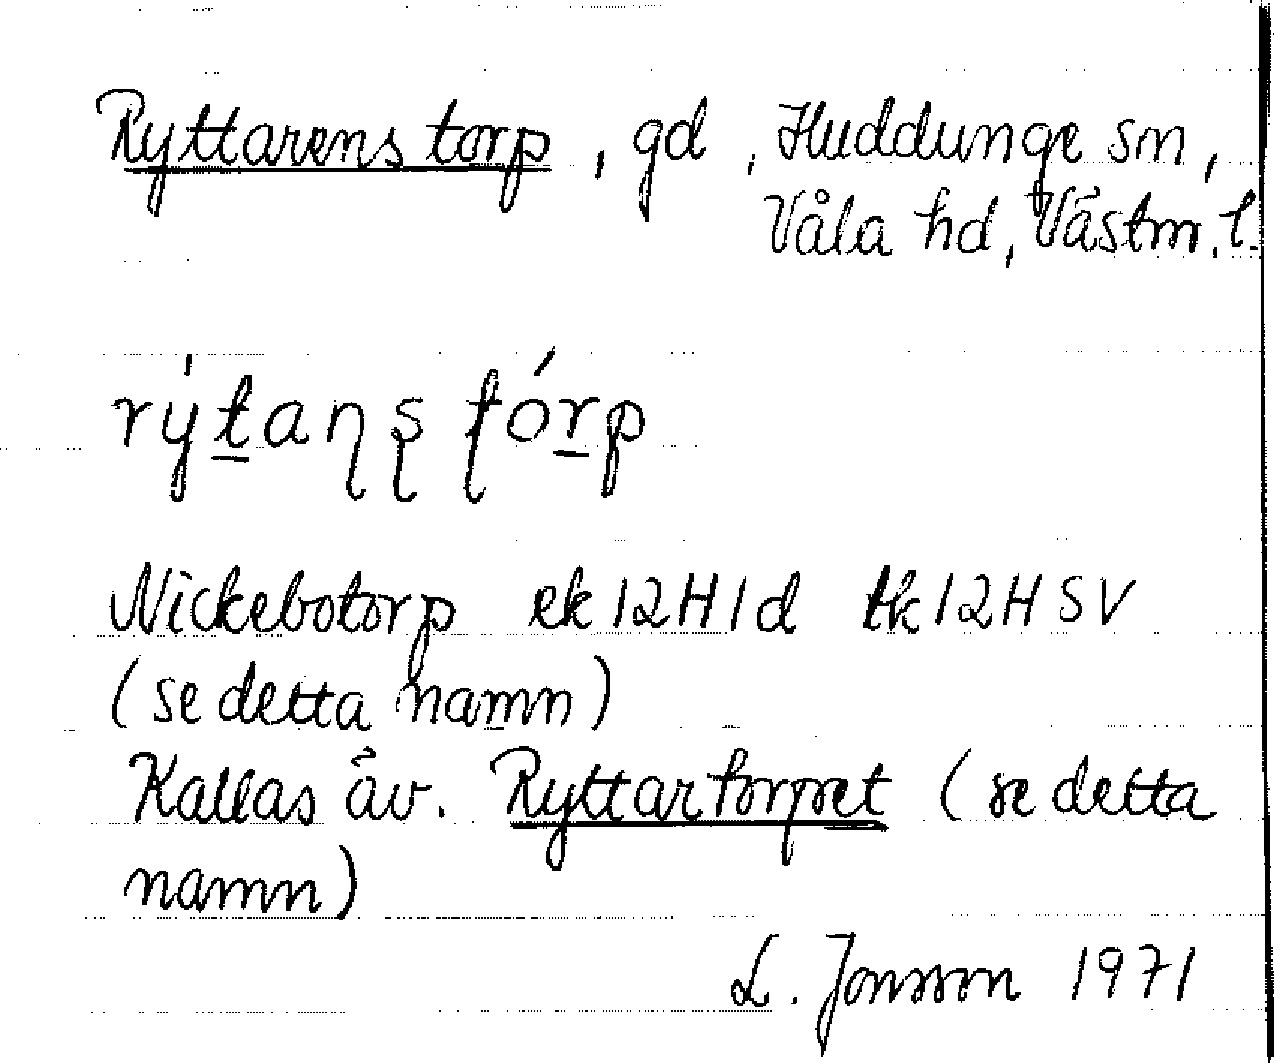 Ryttarens torp, gd, Huddunge sn,
Våla hd, Västm. l.
rýt̠aɳʂ ʈórp̠
Nickebotorp ek 12H1d tk 12H SV
(se detta namn)
Kallas äv. Ryttartorpet (se detta
namn)
L. Jonsson 1971